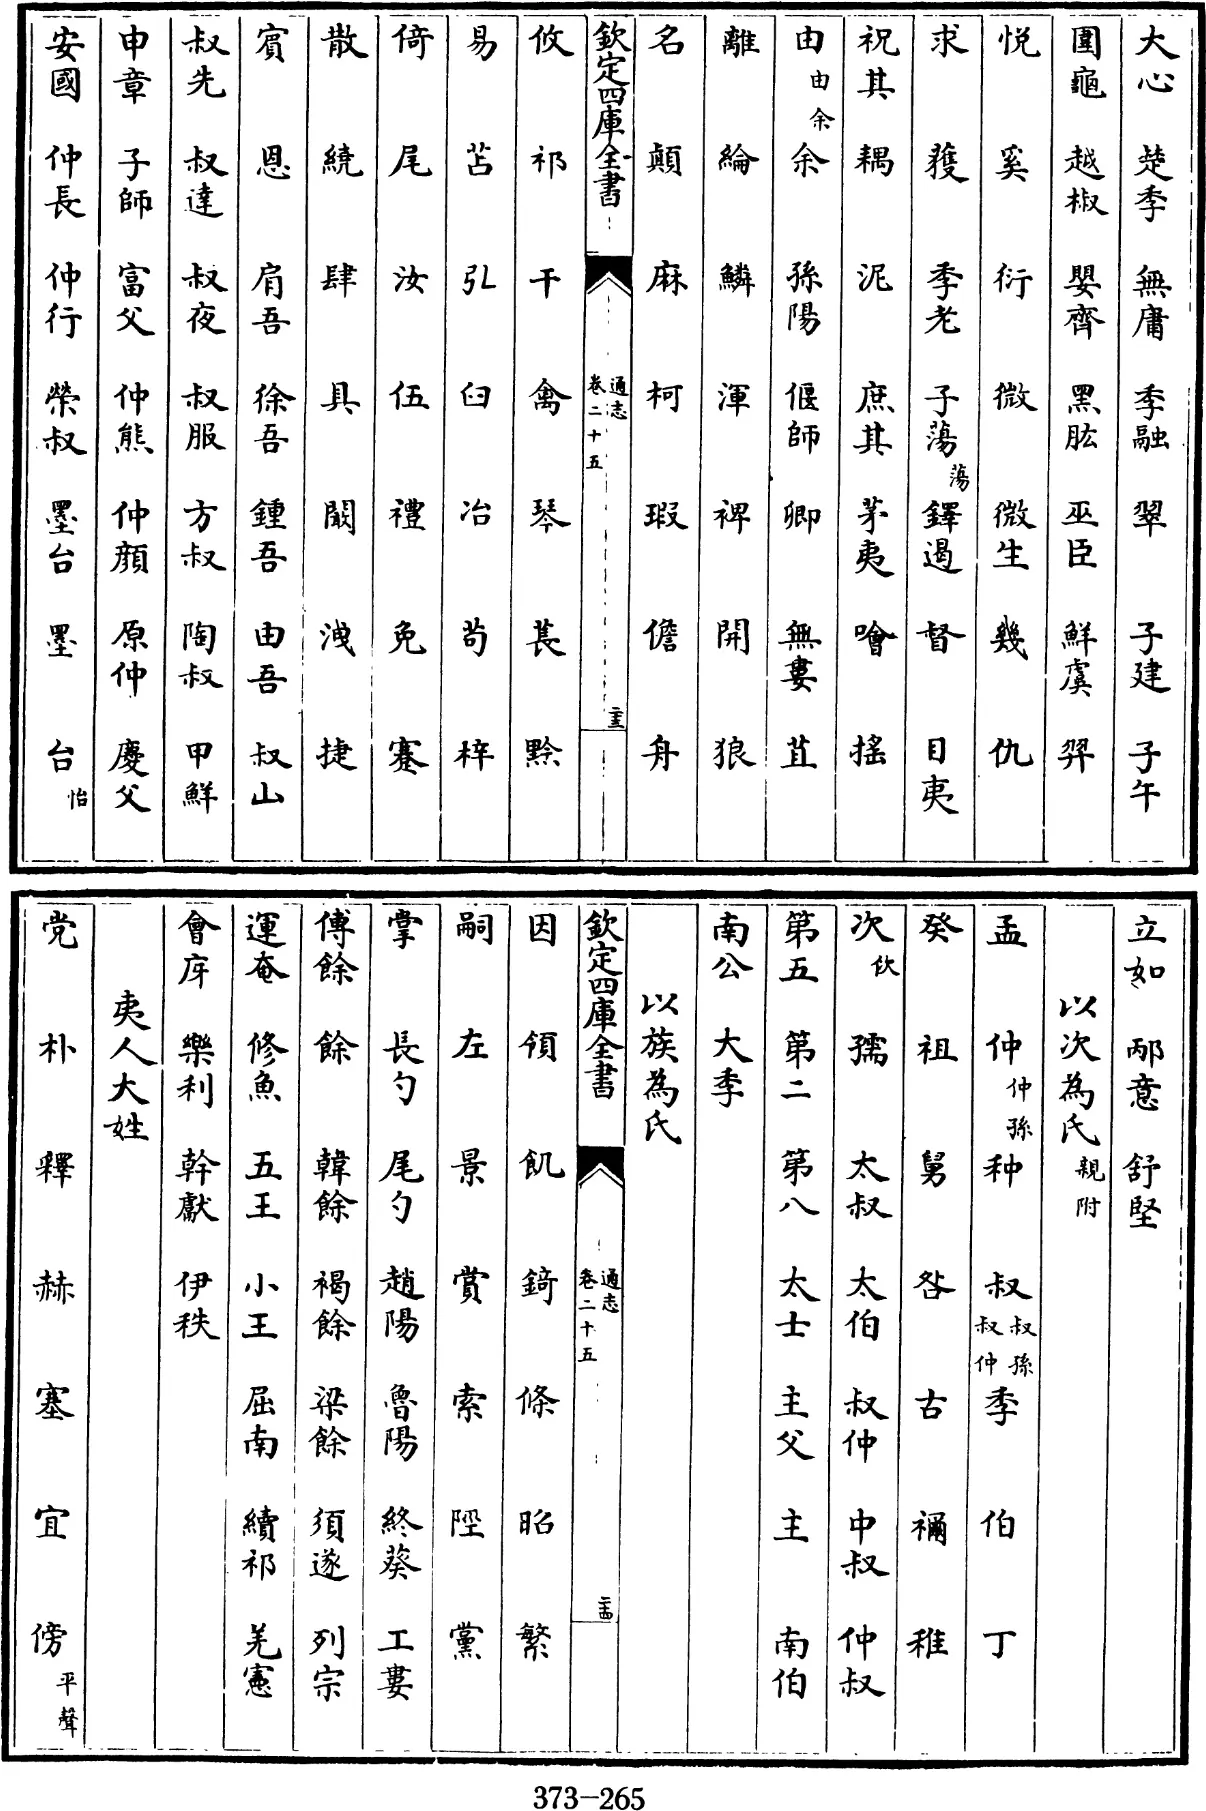 大心 楚季 無庸 季融 翠 子建 子午
圍龜 越椒 嬰齊 黑肱 巫臣 鮮虞 羿
悦 奚 衍 微 微生 幾 仇
求 獲 季老 子蕩蕩 鐸遏 督 目夷
祝其 耦 泥 庶其 茅夷 噲 摇
由由余 余 孫陽 偃師 卿 無婁 苴
離 綸 鱗 渾 裨 開 狼
名 顛 麻 柯 瑕 儋 舟
欽定四庫全書 通志卷二十五 二十三
攸 祁 干 禽 琴 萇 黔
易 苫 引 臼 冶 茍 梓
倚 尾 汝 伍 禮 免 蹇
散 繞 肆 具 闞 洩 捷
賔 恩 肩吾 徐吾 鍾吾 由吾 叔山
叔先 叔達 叔夜 叔服 方叔 陶叔 甲鮮
申章 子師 富父 仲熊 仲顔 原仲 慶父
安國 仲長 仲行 榮叔 墨台 墨 台怡
立如 邴意 舒堅
以次為氏親附
孟 仲仲孫 种 叔叔孫叔仲 季 伯 丁
癸 祖 舅 咎 古 禰 稚
次佽 孺 太叔 太伯 叔仲 中叔 仲叔
第五 第二 第八 太士 主父 主 南伯
南公 大季
以族為氏
欽定四庫全書 通志卷二十五 二十四
因 領 飢 錡 條 昭 繁
嗣 左 景 賞 索 陘 黨
掌 長勺 尾勺 趙陽 魯陽 終葵 工婁
傅餘 餘 韓餘 褐餘 梁餘 須遂 列宗
運奄 修魚 五王 小王 屈南 續祁 羌憲
會序 樂利 幹獻 伊秩
夷人大姓
党 朴 釋 赫 塞 宜 傍平聲
373-265